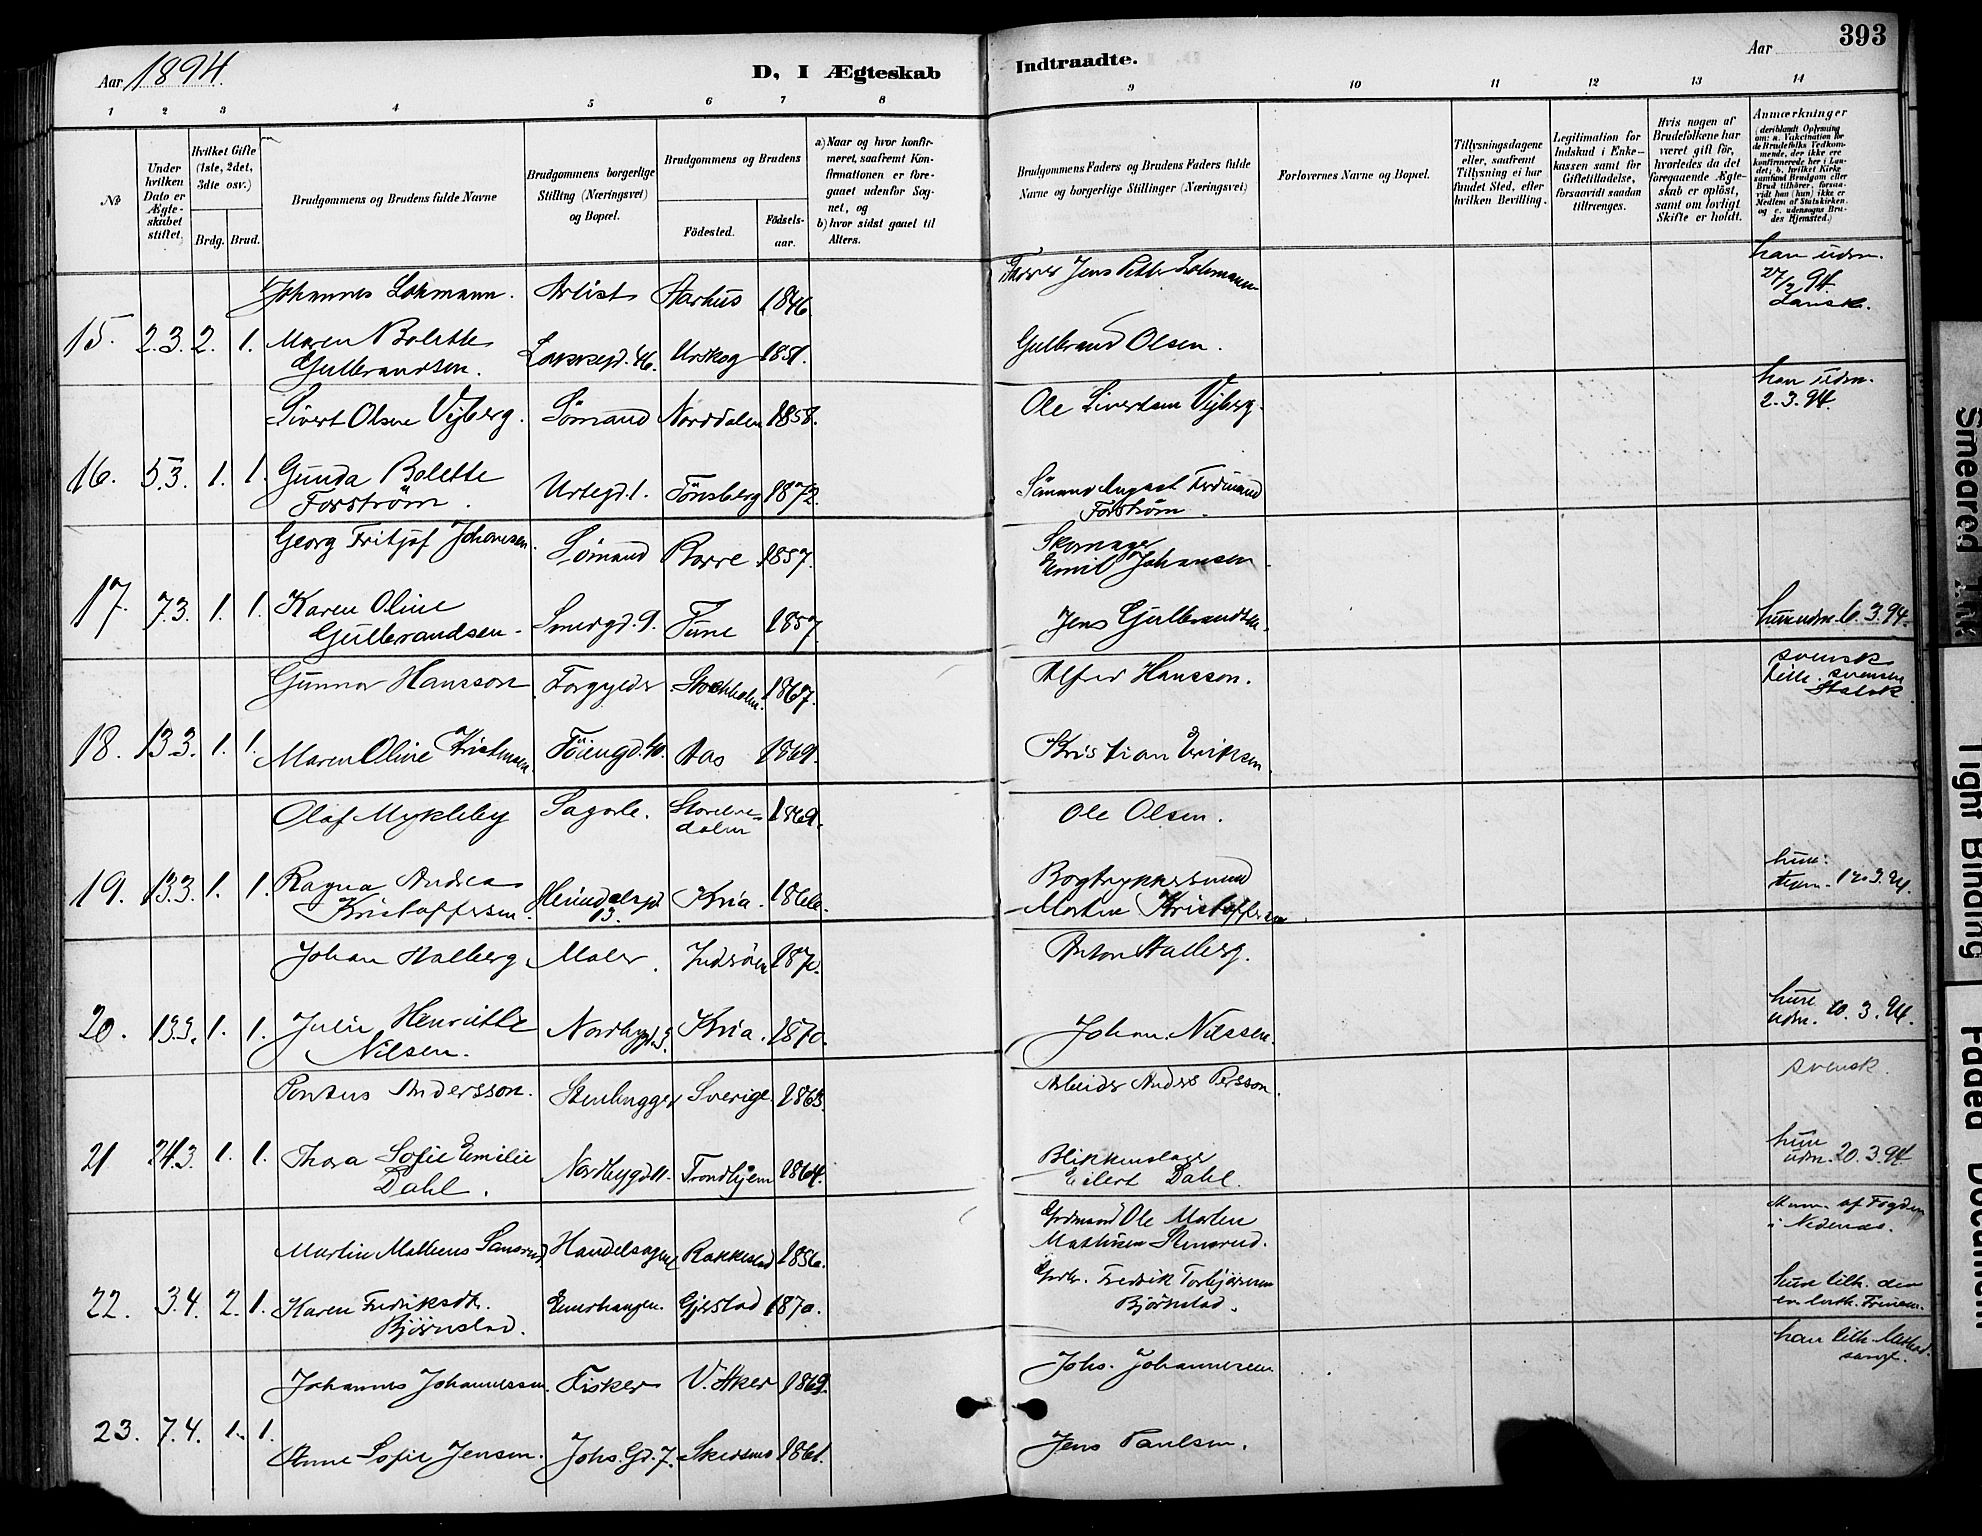 Aar 1894.
D, I Ægteskab
Indtraadte.
Aar
393
1 2 3 4 5 6 7 8 9 10 11 12 13 14
No
Under hvilken Dato er Ægteskabet stiftet.
Hvilket Gifte (1ste, 2det, 3die osv.)
Brdg. Brud.
Brudgommens og Brudens fulde Navne
Brudgommens borgerlige Stilling (Næringsvei) og Bopæl.
Brudgommens og Brudens
Fødested.
Fødselsaar.
a) Naar og hvor konfirmeret, saafremt Konfirmationen er foregaaet udenfor Sognet, og
b) hvor sidst gaaet til Alters.
Brudgommens Faders og Brudens Faders fulde Navne og borgerlige Stillinger (Næringsvei)
Forlovernes Navne og Bopæl.
Tillysningsdagene eller, saafremt Tillysning ei har fundet Sted, efter hvilken Bevilling.
Legitimation for Indskud i Enkekassen samt for Giftetilladelse, forsaavidt saadan tiltrænges.
Hvis nogen af Brudefolkene har været gift før, hvorledes da det foregaaende Ægteskab er opløst, samt om lovligt Skifte er holdt.
Anmærkninger (deriblandt Oplysning om: a. Vakcination for de Brudefolks Vedkommende, der ikke ere konfirmerede her i Landet; b. hvilket Kirkesamfund Brudgom eller Brud tilhører, forsaavidt han (hun) ikke er Medlem af Statskirken, og c. udensogns Brudes Hjemsted.)
Johannes Lohmann. Artist Aarhus 1846. Jens Petter Lohmann han udm. 27/2 94. Dansk.
15. 2.3. 2. 1. Maren Bolette Gulbrandsen. 46. Urskog 1851. Gulbrand Olsen.
Sivert Olsen Vijberg. Sømand Norddalen 1858. Ole Sivertsen Vijberg. han udm. 2.3.94.
16. 5.3. 1. 1. Gunda Bolette Forstrøm. Urtegd. 1. Tönsberg 1872. Sömand August Ferdinand Forstrøm.
Georg Fritjof Johansen. Sømand Borre 1857. Skomager Emil Johansen
17. 7.3. 1. 1. Karen Oline Gulbrandsen. Smedgd. 9. Tune 1857 Jens Gulbrandsen. hun udm. 6.3.94.
Gunnar Hansson Forgylder Stockholm. 1867. Alfred Hansson. svensk tilh. svenske Statsk
18. 13.3. 1. 1. Maren Oline Kristiansen. Töiengd. 40. Aas 1869. Kristian Eriksen
Olaf Mykleby Sagarb. Storelvedalen 1869. Ole Olsen.
19. 13.3. 1. 1. Ragna Andrea Kristoffersen. Heimdalsgd. 13. Kria. 1866. Bogtrykkersvend Morten Kristoffersen hun 12.3.94.
Johan Halberg Maler. Inderöen 187 Anton Halberg.
20. 13.3. 1. 1. Julie Henriette Nilsen. Nordbygd. 3. Kria. 1870. Johan Nilssen. hun udm. 10.3.94.
Pontus Andersson. Stenhugger Sverige 1863. Arbeider Anders Persson. svensk.
21 24.3. 1. 1. Thora Sofie Emilie Dahl. Nordbygd. 11. Trondhjem 1864. Blikkenslager Eilert Dahl. hun udm. 20.3.94
Martin Matheus Handelsagent Rakkestad 1856. Gbrdmand Ole Martin Mathisen Stensrud. af Fogden i Nedenæs.
22. 3.4. 2. 1. Karen Fredriksdtr. Bjørnstad. Enerhaugen. Gjestad 1870. Fredrik Torbjörnsen Bjørnstad. hun tilh. den ev. luth. Frimen.
Johannes Johannessen. Fisker V. Aker 1869. Johs. Johannesen han tilh.
23. 7.4. 1. 1. Anne Sofie Jensen. Johs. Gd. 7. Skedsmo 1861. Jens Paulsen.
Smeared Ink
Tight Binding
Faded Document